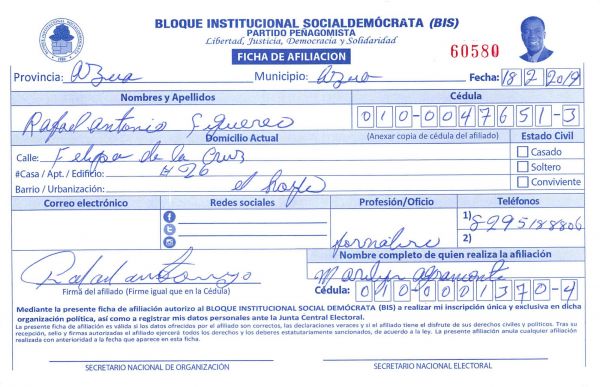 BLOQUE INSTITUCIONAL SOCIALDEMÓCRATA (BIS)
PARTIDO PEÑAGOMISTA
Libertad, Justicia, Democracia y Solidaridad
FICHA DE AFILIACION
60580
Provincia: Azua Municipio: Azua Fecha: 18 2 2019
Nombres y Apellidos Cédula
Rafael Antonio Figuereo 010-0047651-3
Domicilio Actual (Anexar copia de cédula del afiliado) Estado Civil
Calle: Felipa de la Cruz Casado
#Casa / Apt. / Edificio: #26 Soltero
Barrio / Urbanización: el Conviviente
Correo electrónico Redes sociales Profesión/Oficio Teléfonos
1) 8295188806
2)
Nombre completo de quien realiza la afiliación
Rafael Antonio
Firma del afiliado (Firme igual que en la Cédula)
Cédula: 010-0001370-4
Mediante la presente ficha de afiliación autorizo al BLOQUE INSTITUCIONAL SOCIAL DEMÓCRATA (BIS) a realizar mi inscripción única y exclusiva en dicha
organización política, así como a registrar mis datos personales ante la Junta Central Electoral.
La presente ficha de afiliación es válida si los datos ofrecidos por el afiliado son correctos, las declaraciones veraces y si el afiliado tiene el disfrute de sus derechos civiles y políticos. Tras su
recepción, sello y firmas autorizadas el afiliado ejercerá todos los derechos y los deberes estatutariamente sancionados, de acuerdo a la ley. La presente afiliación anula cualquier afiliación
realizada con anterioridad a la fecha que aparece en esta ficha.
SECRETARIO NACIONAL DE ORGANIZACIÓN SECRETARIO NACIONAL ELECTORAL